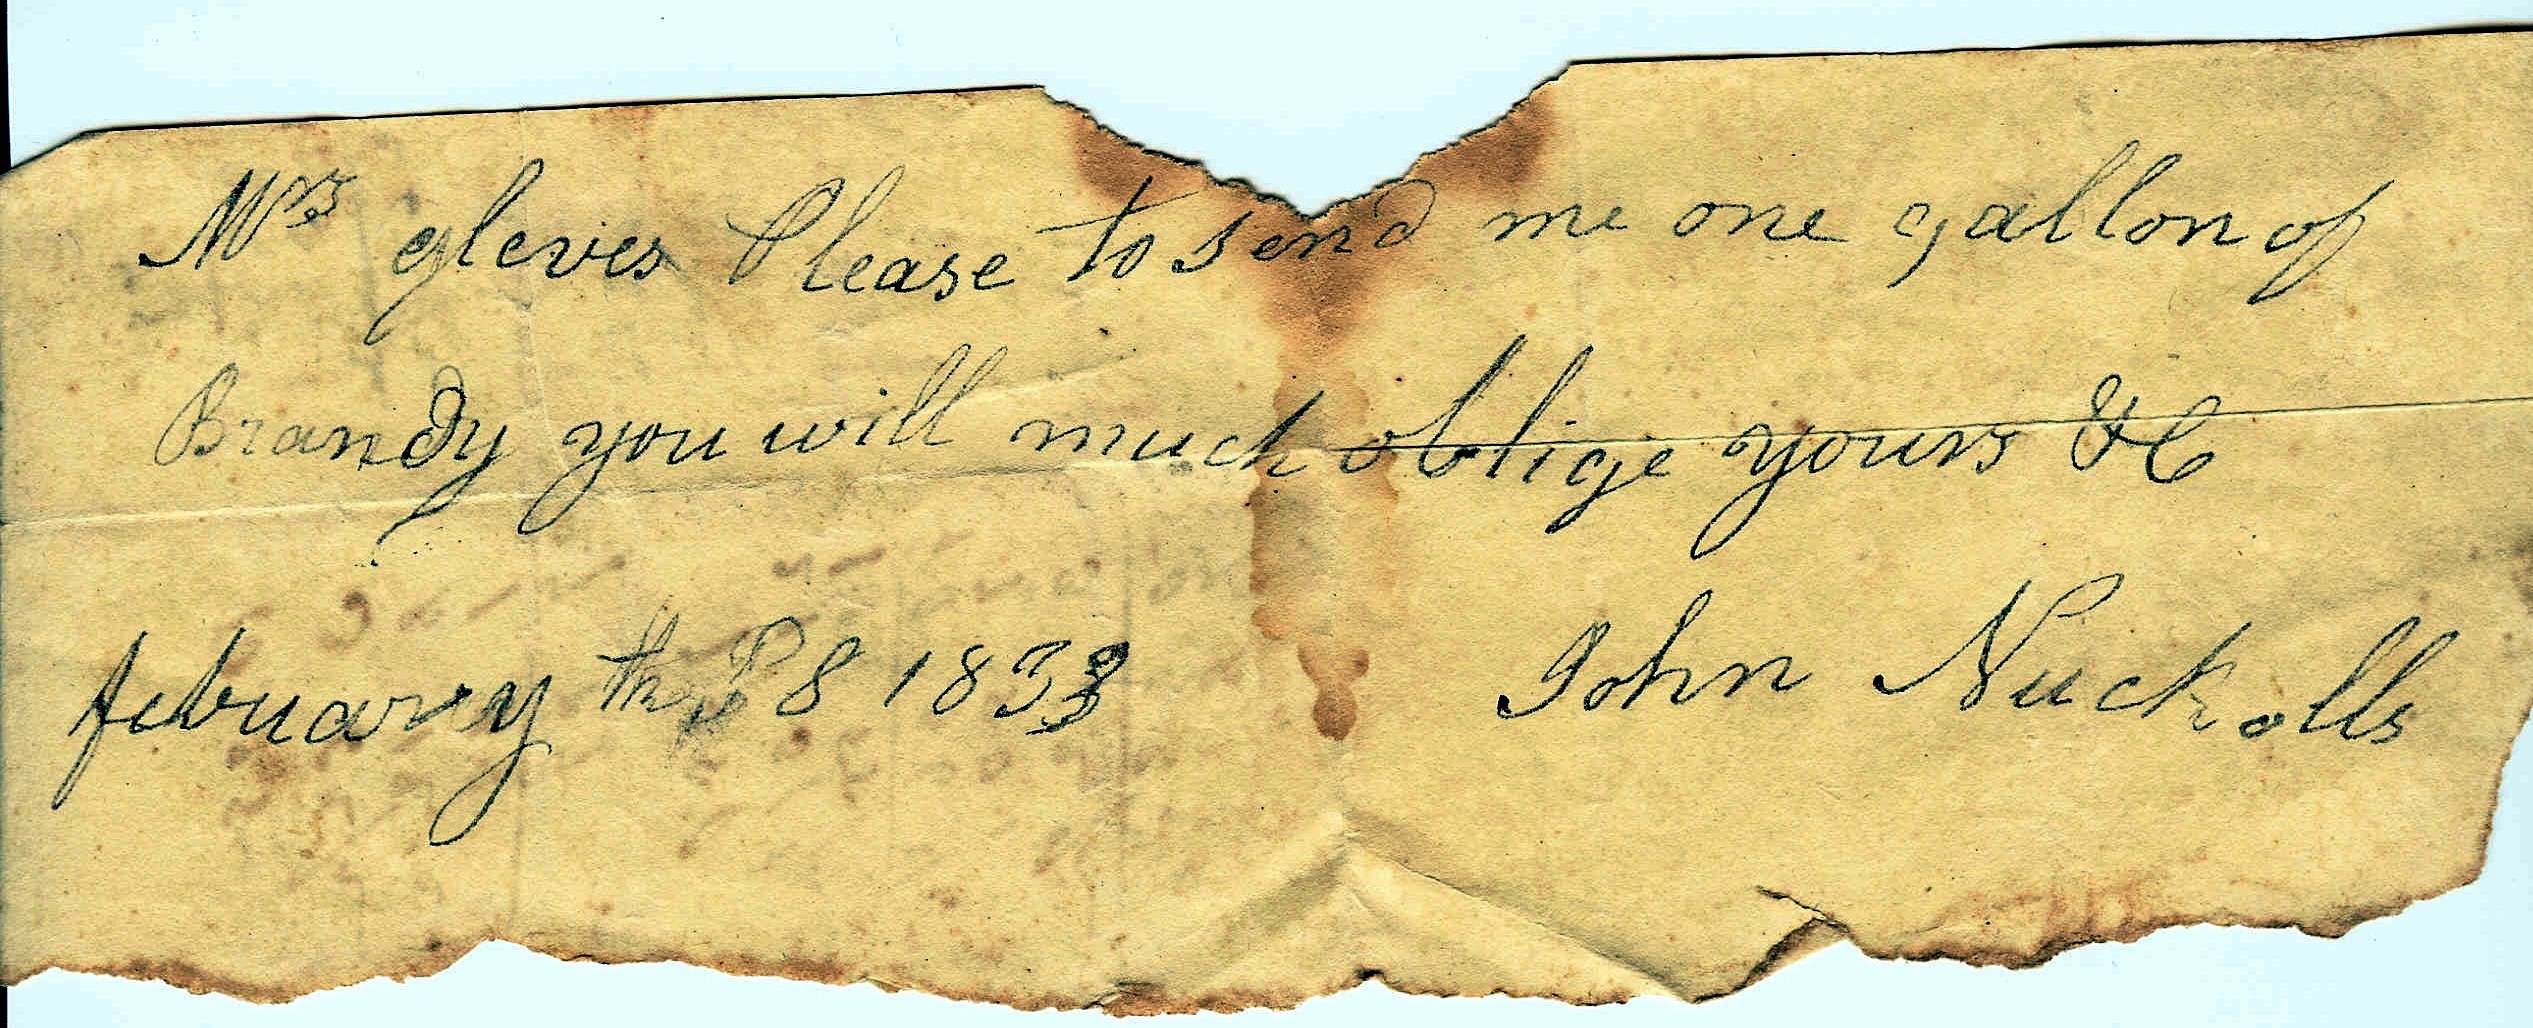 Mrs gleves Please to send me one gallon of
Brandy you will much oblige yours &C
february the 8 1833 John Nuckolls